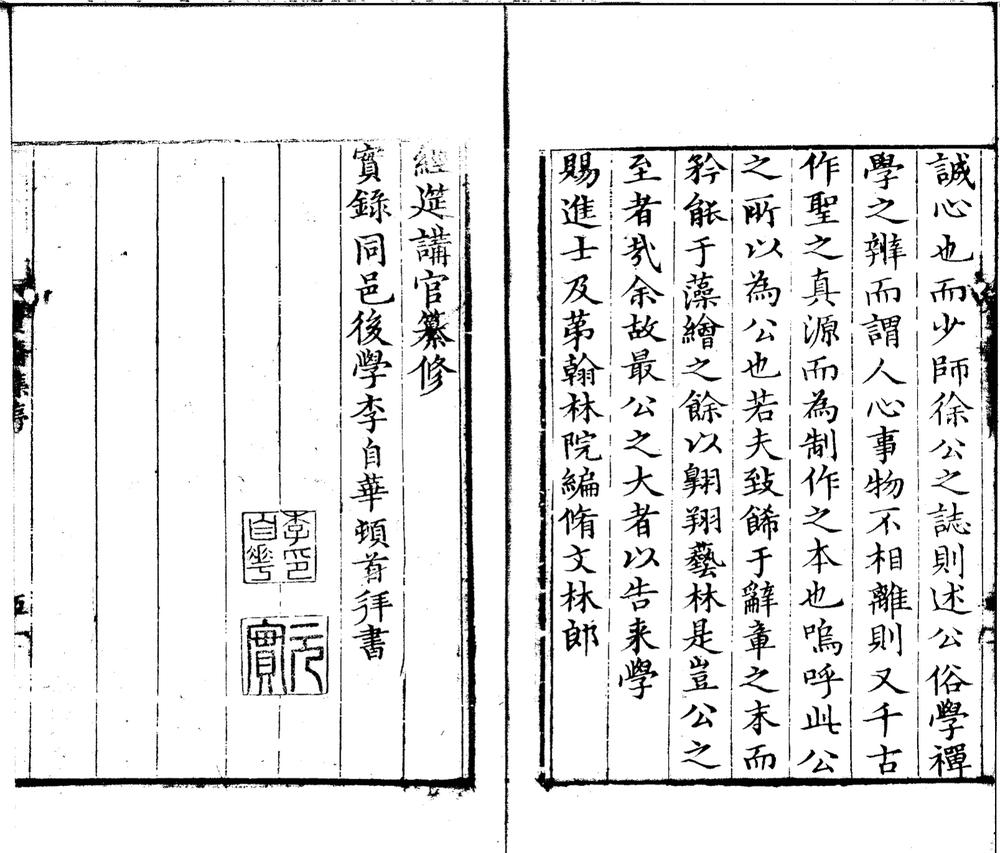 誠心也而少師徐公之誌則述公俗學禪
學之辨而謂人心事物不相離則又千古
作聖之真源而為制作之本也嗚呼此公
之所以為公也若夫致餙于辭章之末而
矜能于藻繪之餘以翱翔藝林是豈公之
至者哉余故最公之大者以告来學
賜進士及苐翰林院編脩文林郎
經筵講官纂修
實錄同邑後學李自華頓首拜書
李自華印
元實
集序
五